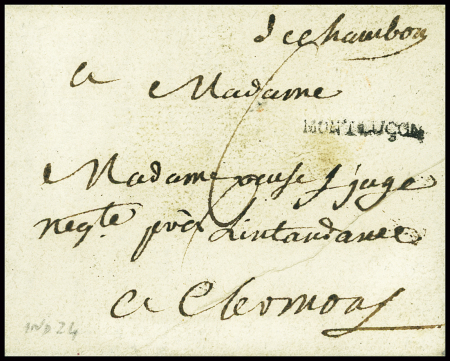 de chambon
a Madame
MONTLUÇON
Madame veuse juge
negte près Lintandance
a Clermont
ind 24